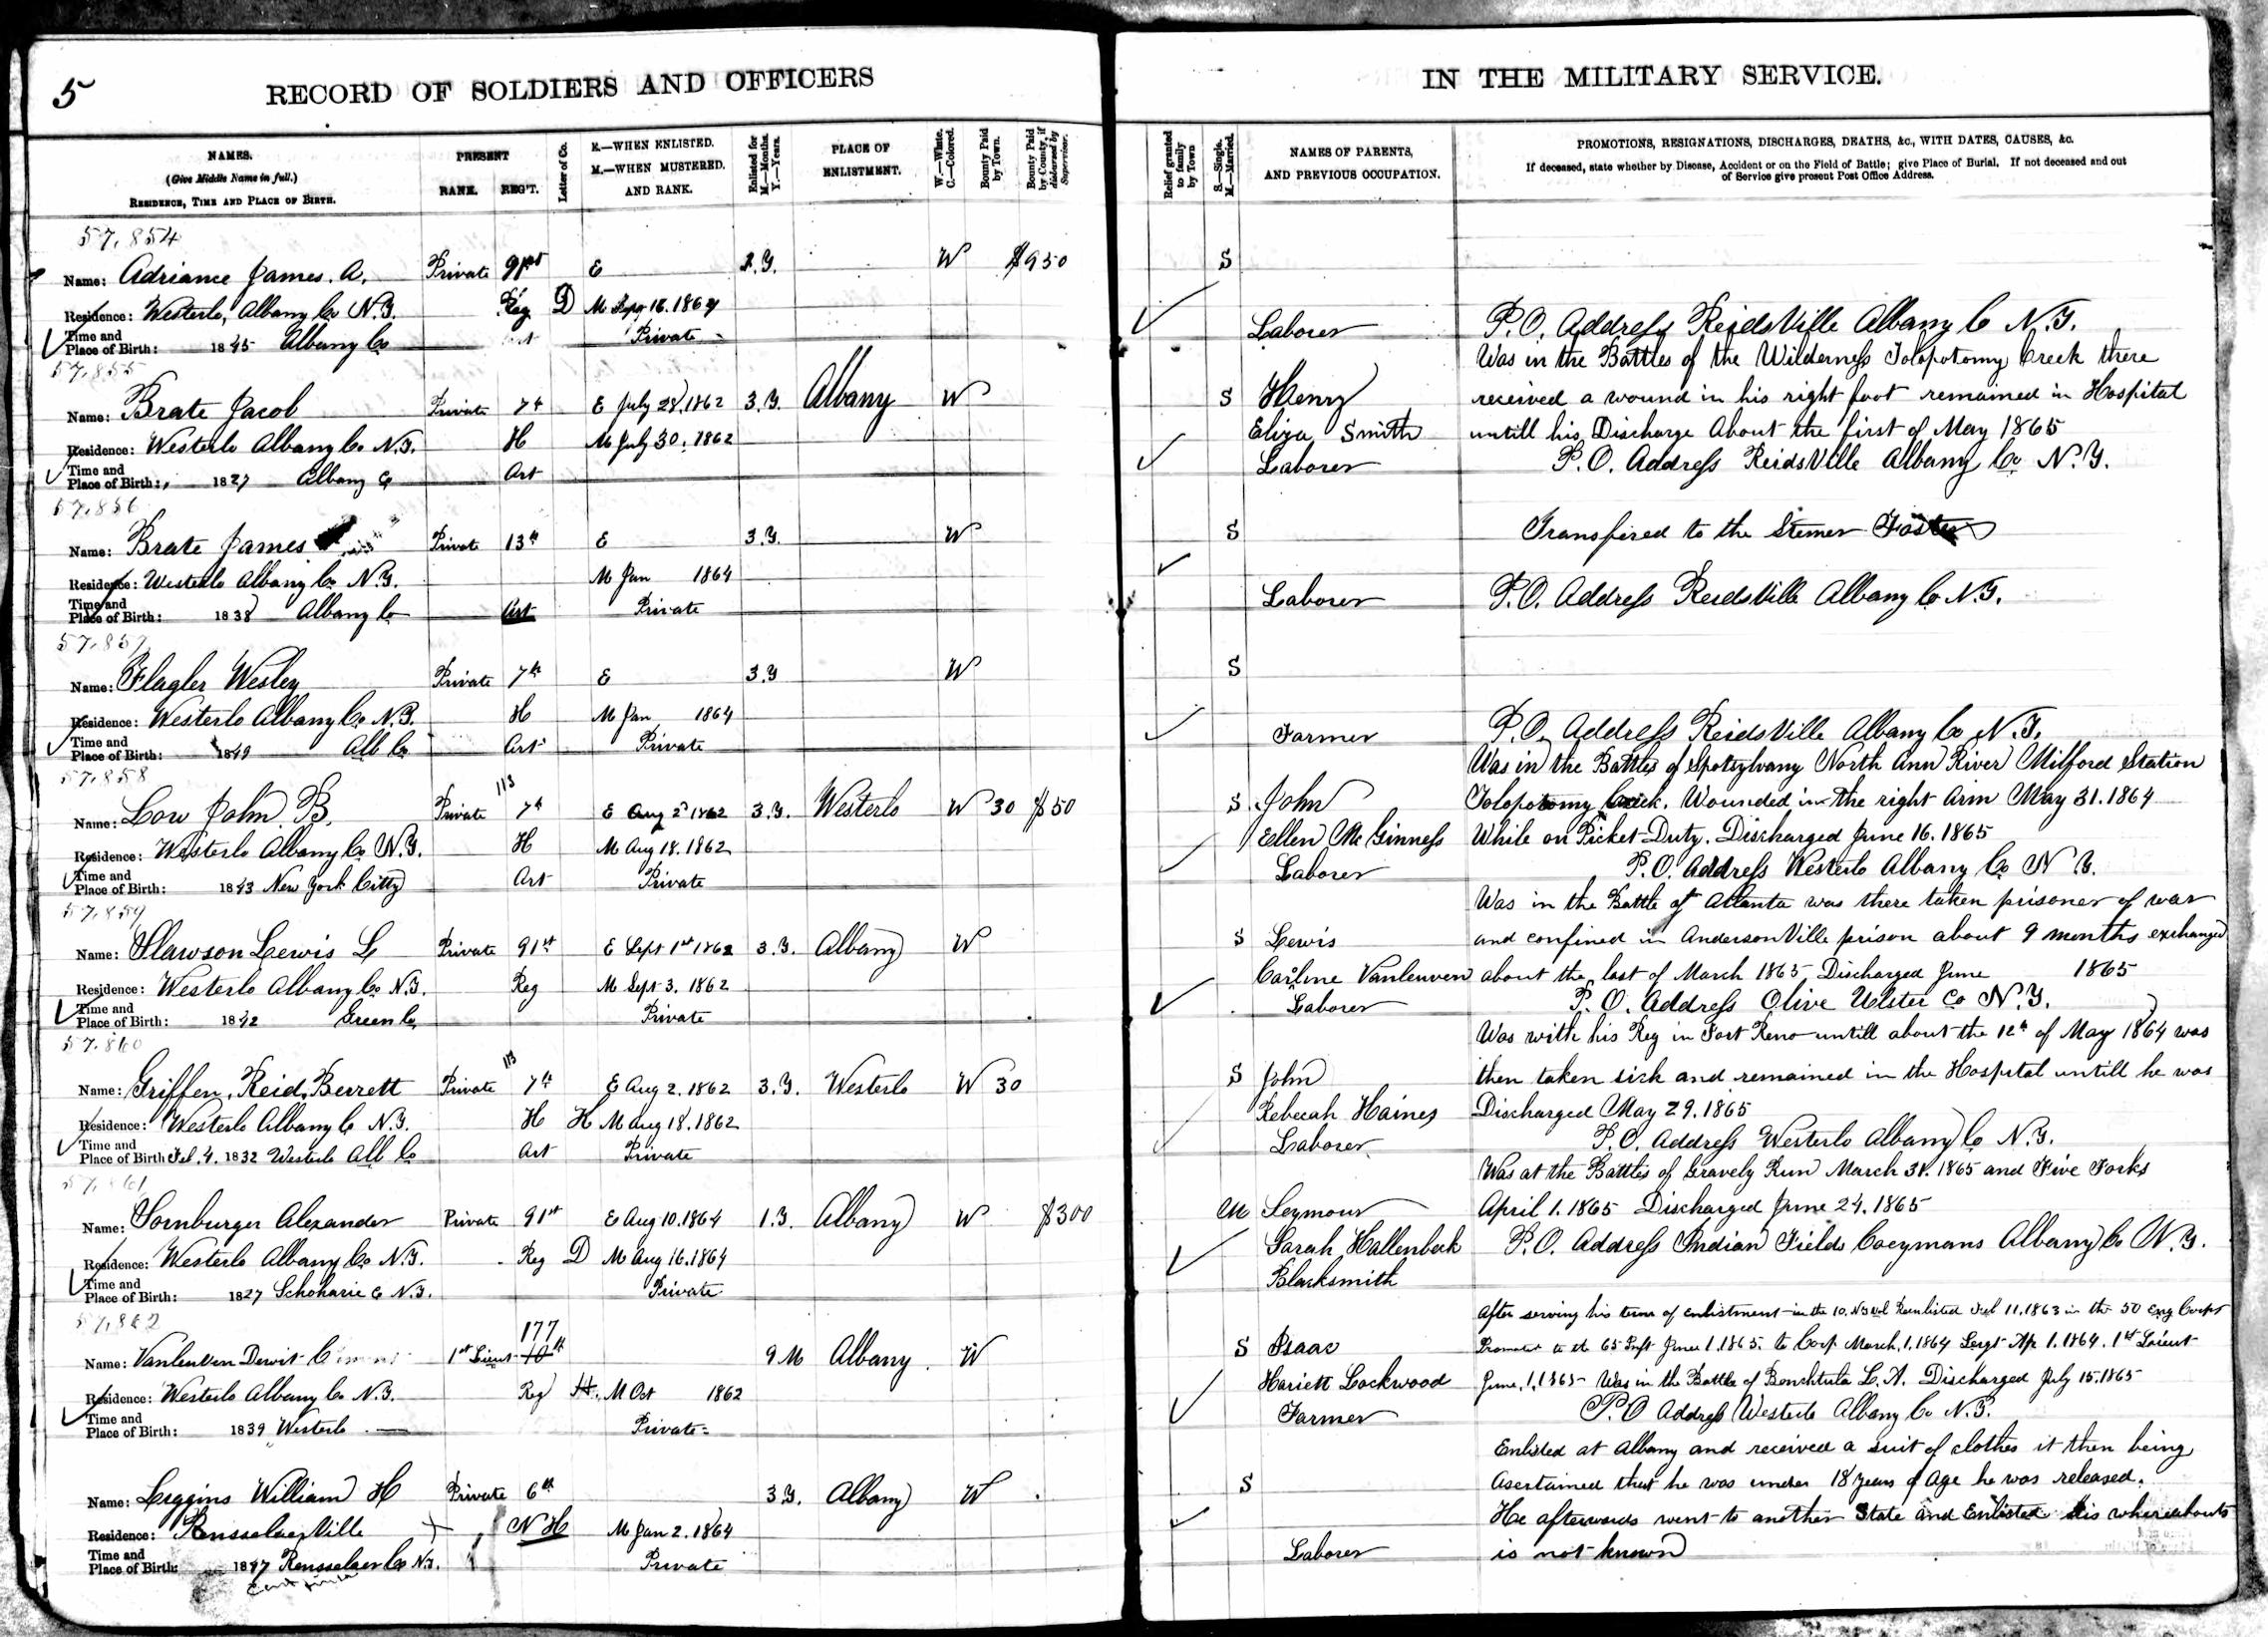 5
RECORD OF SOLDIERS AND OFFICERS
IN THE MILITARY SERVICE.
NAMES.
(Give Middle Name in full.)
RESIDENCE, TIME AND PLACE OF BIRTH.
PRESENT
RANK. REG'T.
Letter of Co.
E.—WHEN ENLISTED.
M.—WHEN MUSTERED.
AND RANK.
Enlisted for
M.—Months.
Y.—Years.
PLACE OF
ENLISTMENT.
W.—White.
C.—Colored.
Bounty Paid
by Town.
Bounty Paid
by County, if
disbursed by
Supervisor.
Relief granted
to family
by Town
S.—Single.
M.—Married.
NAMES OF PARENTS,
AND PREVIOUS OCCUPATION.
PROMOTIONS, RESIGNATIONS, DISCHARGES, DEATHS, &c., WITH DATES, CAUSES, &c.
If deceased, state whether by Disease, Accident or on the Field of Battle; give Place of Burial. If not deceased and out
of Service give present Post Office Address.
57.854
Name: Adriance James. A. Private 91st E Y. W $950 S
Residence: Westerlo, Albany Co N.Y. Reg D M 16. 1864
Time and
Place of Birth: 1845 Albany Co Private Laborer P.O. Address ReidsVille Albany Co N.Y.
57.855
Was in the Battles of the Wilderness Tolopotomy Creek there
Name: Brate Jacob Private 7th E July 28, 1862 3.Y. Albany W S Henry received a wound in his right foot remained in Hospital
Residence: Westerlo Albany Co N.Y. H M July 30, 1862 Eliza Smith untill his Discharge About the first of May 1865
Time and
Place of Birth: 1827 Albany Co Art Laborer P.O. Address ReidsVille Albany Co N.Y.
57.856
Name: Brate James Private 13th E 3.Y. W S Transfired to the Stemer Foster
Residence: Westerlo Albany Co N.Y. M Jan 1864
Time and
Place of Birth: 1838 Albany Co Art Private Laborer P.O. Address ReidsVille Albany Co N.Y.
57.857
Name: Flagler Wesley Private 7th E 3.Y W S
Residence: Westerlo Albany Co N.Y. H M Jan 1864
Time and
Place of Birth: 1849 Alb Co Art Private Farmer P.O. Address ReidsVille Albany Co N.Y.
57.858
Was in the Battles of Spotsylvany North Ann River Milford Station
113
Name: Low John. B. Private 7th E Aug 2d 1862 3.Y. Westerlo W 30 $50 S John Tolopotomy Creek. Wounded in the right Arm May 31. 1864
Residence: Westerlo Albany Co N.Y. H M Aug 18. 1862 Ellen McGinness While on Picket Duty. Discharged June 16. 1865
Time and
Place of Birth: 1843 New York Citty Art Private Laborer P.O. Address Westerlo Albany Co N.Y.
57.859
Was in the Battle of Atlanta was there taken prisoner of war
Name: Slawson Lewis L Private 91st E Sept 1st 1862 3.Y. Albany W S Lewis and confined in AndersonVille prison about 9 months exchanged
Residence: Westerlo Albany Co N.Y. Reg M Sept 3. 1862 Carline Vanleuven about the last of March 1865 Discharged June 1865
Time and
Place of Birth: 1842 Green Co Private Laborer P.O. Address Olive Ulster Co N.Y.
57.860
Was with his Reg in Fort Reno untill about the 12th of May 1864 was
113
Name: Griffen, Reid, Berrett Private 7th E Aug 2. 1862 3.Y. Westerlo W 30 S John then taken sick and remained in the Hospital untill he was
Residence: Westerlo Albany Co N.Y. H H M Aug 18. 1862 Rebecah Haines Discharged May 29. 1865
Time and
Place of Birth: Feb. 4. 1832 Westerlo Alb Co Art Private Laborer P.O. Address Westerlo Albany Co N.Y.
57.861
Was at the Battles of Gravely Run March 31. 1865 and Five Forks
Name: Sornburger Alexander Private 91st E Aug 10. 1864 1.Y. Albany W $300 M Seymour April 1. 1865 Discharged June 24. 1865
Residence: Westerlo Albany Co N.Y. Reg D M Aug 16. 1864 Sarah Hallenbeck P.O. Address Indian Fields Coeymans Albany Co N.Y.
Time and
Place of Birth: 1827 Schoharie Co N.Y. Private Blacksmith
57.862
After serving his term of enlistment in the 10. NY Vol Reenlisted Feb 11. 1863 in the 50 Eng Corps
177
Name: VanLeuven Dewit 1st Lieut 10th 9 M Albany W S Isaac Promoted to the 65 June 1. 1865. to Corp March. 1. 1864 Sergt Ap 1. 1864. 1st Leieut
Residence: Westerlo Albany Co N.Y. Reg H. M Oct 1862 Hariett Lockwood June. 1. 1865 Was in the Battle of Bonchtula L.A. Discharged July 15. 1865
Time and
Place of Birth: 1839 Westerlo Private Farmer P.O Address Westerlo Albany Co N.Y.
Enlisted at Albany and received a suit of clothes it then being
Name: Liggins William H Private 6th 3.Y. Albany W S Asertained that he was under 18 years of Age he was released.
Residence: RensselaerVille N H M Jan 2. 1864 He afterwards went to another State and Enlisted His whereabouts
Time and
Place of Birth: 1847 Rensselaer Co N.Y. Private Laborer is not known